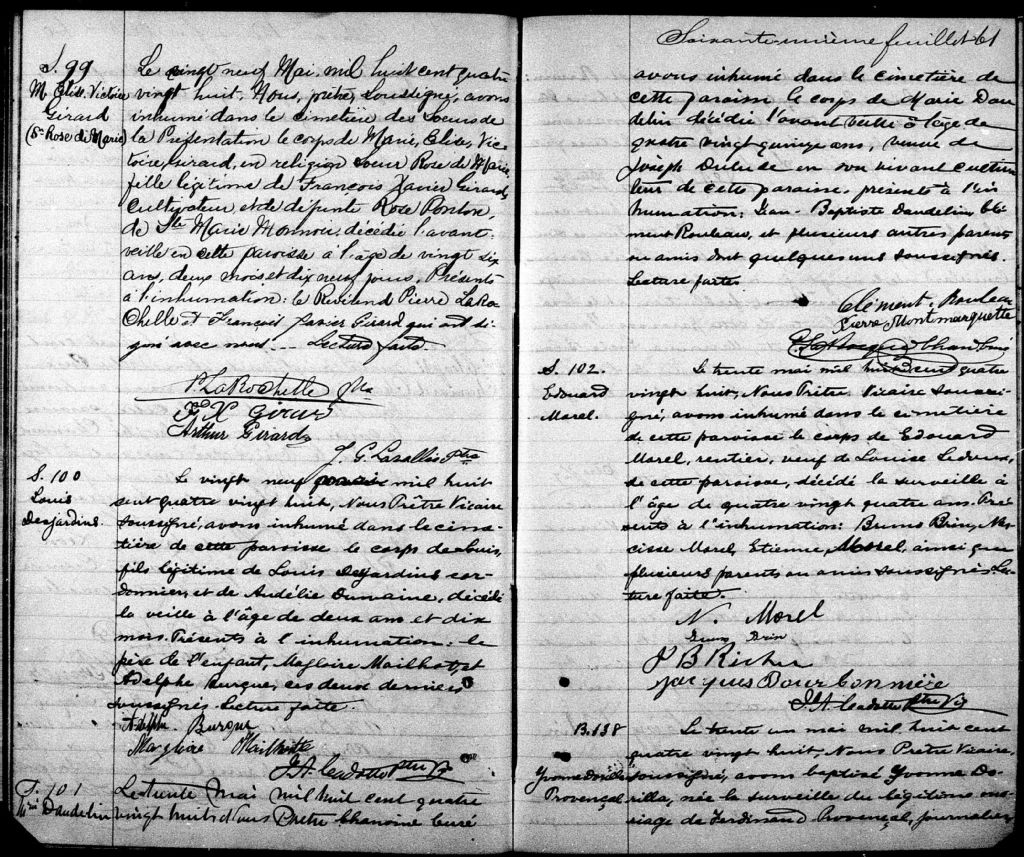 S. 99
M. Elise. Victoire
Girard
(Sr Rose de Marie)
Le vingt neuf Mai. mil huit cent quatre
vingt huit, Nous, prêtre, soussigné, avons
inhumé dans le cimetière des Soeurs de
la Présentation le corps de Marie, Elise, Vic-
toire, Girard, en religion soeur Rose de Marie,
fille légitime de François Xavier Girard,
cultivateur, et de défunte Rose Ponton,
de Ste Marie Monnoir, décédée l'avant-
veille en cette paroisse à l'âge de vingt six
ans, deux mois et dix neuf jours, Présents
à l'inhumation: le Révérend Pierre LaRo-
chelle et François Xavier Girard qui ont si-
gné avec nous. Lecture faite.
P. LaRochelle ptre
F X Girard
Arthur Girard
J. G. Lavallée Ptre
S. 100
Louis
Desjardins.
Le vingt neuf mil huit
cent quatre vingt huit, Nous Prêtre Vicaire
soussigné, avons inhumé dans le cime-
tière de cette paroisse le corps de Louis,
fils légitime de Louis Desjardins cor-
donnier, et de Audélie Dumaine, décédé
la veille à l'âge de deux ans et dix
mois. Présents à l'inhumation: le
père de l'enfant, Magloire Mailhot, et
Adolphe Burque, ces deux derniers
soussignés lecture faite.
Adolphe Burque
Magloire Mailhotte
J.A. Cadotte Ptre Vic
S. 101
Mrie Daudelin
Le trente Mai mil huit cent quatre
vingt huit Nous Prêtre Chanoine Curé
Soixante-unième feuillet 61
avons inhumé dans le cimetière de
cette paroisse le corps de Marie Dau
delin décédée l'avant veille à l'âge de
quatre vingt quinze ans, veuve de
Joseph Dulude en son vivant cultiva
teur de cette paroisse, présents à l'in
humation: Jean-Baptiste Daudelin, Clé
ment Rouleau, et plusieurs autres parents
ou amis dont quelques uns soussignés.
Lecture faite.
Clément Rouleau
Pierre Montmarquette
S. 102.
Edouard
Morel.
Le trente mai mil huit cent quatre
vingt huit, Nous Prêtre Vicaire soussi-
gné, avons inhumé dans le cimetière
de cette paroisse le corps de Edouard
Morel, rentier, veuf de Louise Ledoux,
de cette paroisse, décédé la surveille à
l'âge de quatre vingt quatre ans. Pré-
sents à l'inhumation: Bruno Brin, Nar-
cisse Morel, Etienne Morel, ainsi que
plusieurs parents ou amis soussignés Lec-
ture faite.
N. Morel
Bruno Brin
J B Richer
Jacques Dour Connière
J.A. Cadotte Ptre Vic
B. 138
Yvonne Dorilla
Provençal
Le trente un mai mil huit cent
quatre vingt huit. Nous Prêtre Vicaire,
soussigné, avons baptisé Yvonne Do-
rilla, née la surveille du légitime ma-
riage de Ferdinand Provençal, journalier,